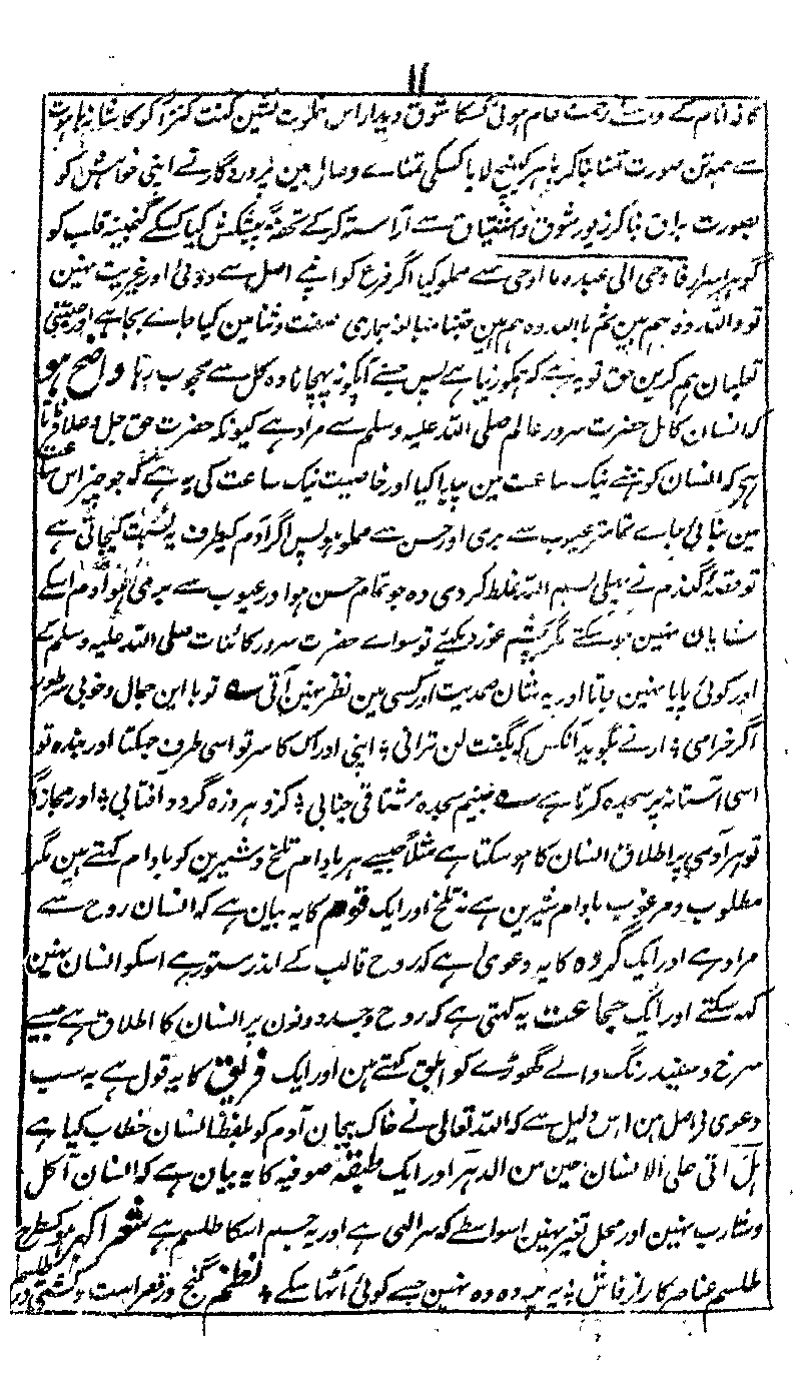 ۱۱
شوق دیدار اس خلوت نشین کنت کنزاً کو کاشانۂ
سے ہمہ تن صورت تمنا بنا کر باہر کھینچ لایا کسکی تمناے وصال مین پروردگار نے اپنی خواہش کو
بصورت براق بنا کر زیور شوق و اشتیاق سے آراستہ کر کے تحفۃً پیشکش کیا کسکے گنجینۂ قلب کو
گوہر اسرار فاوحی الی عبدہ ما اوحی سے مملو کیا اگر فرع کو اپنے اصل سے دوئی اور غیریت نہین
تو واللہ وہ ہم ہین ثم باللہ وہ ہم ہین جتنا مبالغہ ہماری صفت و ثنا مین کیا جاے بجا ہے اور جتنی
تعلیان ہم کرین حق تو یہ ہے کہ ہمکو زیبا ہے پس جسنے آپکو نہ پہچانا وہ کل سے محجوب رہا واضح ہو
کہ انسان کامل حضرت سرور عالم صلی اللہ علیہ وسلم سے مراد ہے کیونکہ حضرت حق جل و علا فرماتا
ہے کہ انسان کو ہمنے نیک ساعت مین پیدا کیا اور خاصیت نیک ساعت کی یہ ہے کہ جو چیز اس ساعت
مین بنائی جاے تمامتر عیوب سے بری اور حسن سے مملو ہو پس اگر آدم کیطرف یہ نسبت کیجاتی ہے
تو دغدغۂ گندم نے پہلی بسم اللہ غلط کر دی وہ جو تمام حسن ہو اور عیوب سے بری ہو آدم اسکے
شایان نہین ہو سکتے مگر بچشم غور دیکھئے تو سواے حضرت سرور کائنات صلی اللہ علیہ وسلم کے
اور کوئی پایا نہین جاتا اور یہ شان صمدیت اور کسی مین نظر نہین آتی ؎ تو با این جمال و خوبی سر طور
اگر خرامی ؛ ارنے بگوید آنکس کہ بگفت لن ترانی ؛ اپنی ادراک کا سر تو اسی طرف جھکتا اور بندہ تو
اسی آستانہ پر سجدہ کرتا ہے ؎ سجدہ مشتاقی جنابی ؛ کزو ہر ذرہ گردد آفتابی ؛ اور مجازاً
تو ہر آدمی پر اطلاق انسان کا ہو سکتا ہے مثلاً جیسے ہر بادام تلخ و شیرین کو بادام کہتے ہین مگر
مطلوب و مرغوب بادام شیرین ہے نہ تلخ اور ایک قوم کا یہ بیان ہے کہ انسان روح سے
مراد ہے اور ایک گروہ کا یہ دعوی ہے کہ روح قالب کے اندر مستور ہے اسکو انسان نہین
کہہ سکتے اور ایک جماعت یہ کہتی ہے کہ روح و جسد دونون پر انسان کا اطلاق ہے جیسے
سرخ و سفید رنگ والے گھوڑے کو ابلق کہتے ہین اور ایک فریق کا یہ قول ہے یہ سب
دعوی لا حاصل ہین اس دلیل سے کہ اللہ تعالی نے خاک بیجان آدم کو لفظ انسان خطاب کیا ہے
ہل اتی علی الانسان حین من الدہر اور ایک طبقۂ صوفیہ کا یہ بیان ہے کہ انسان آکل
و شارب نہین اور محل تغیر نہین اسواسطے کہ سر الہی ہے اور یہ جسم اسکا طلسم ہے شعر اکبر ہو کسطرح
طلسم عناصر کا راز فاش ؛ یہ وہ نہین جسے کوئی اٹھا سکے ؛ نظم گنج در قعر است